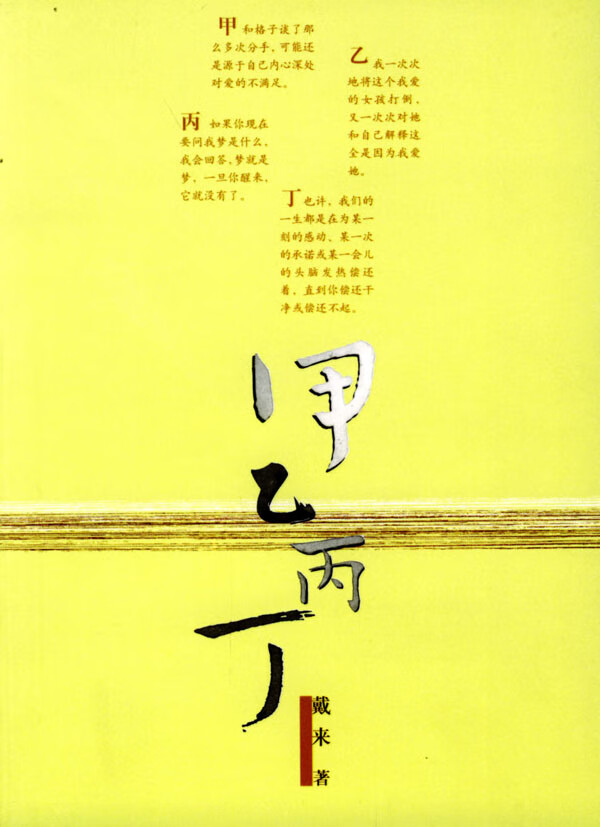 甲 和格子谈了那
么多次分手，可能还
是源于自己内心深处
对爱的不满足。
乙 我一次次
地将这个我爱
的女孩打倒，
又一次次对她
和自己解释这
全是因为我爱
她。
丙 如果你现在
要问我梦是什么，
我会回答，梦就是
梦，一旦你醒来，
它就没有了。
丁 也许，我们的
一生都是在为某一
刻的感动、某一次
的承诺或某一会儿
的头脑发热偿还
着，直到你偿还干
净或偿还不起。
甲
乙
丙
丁
戴来 著